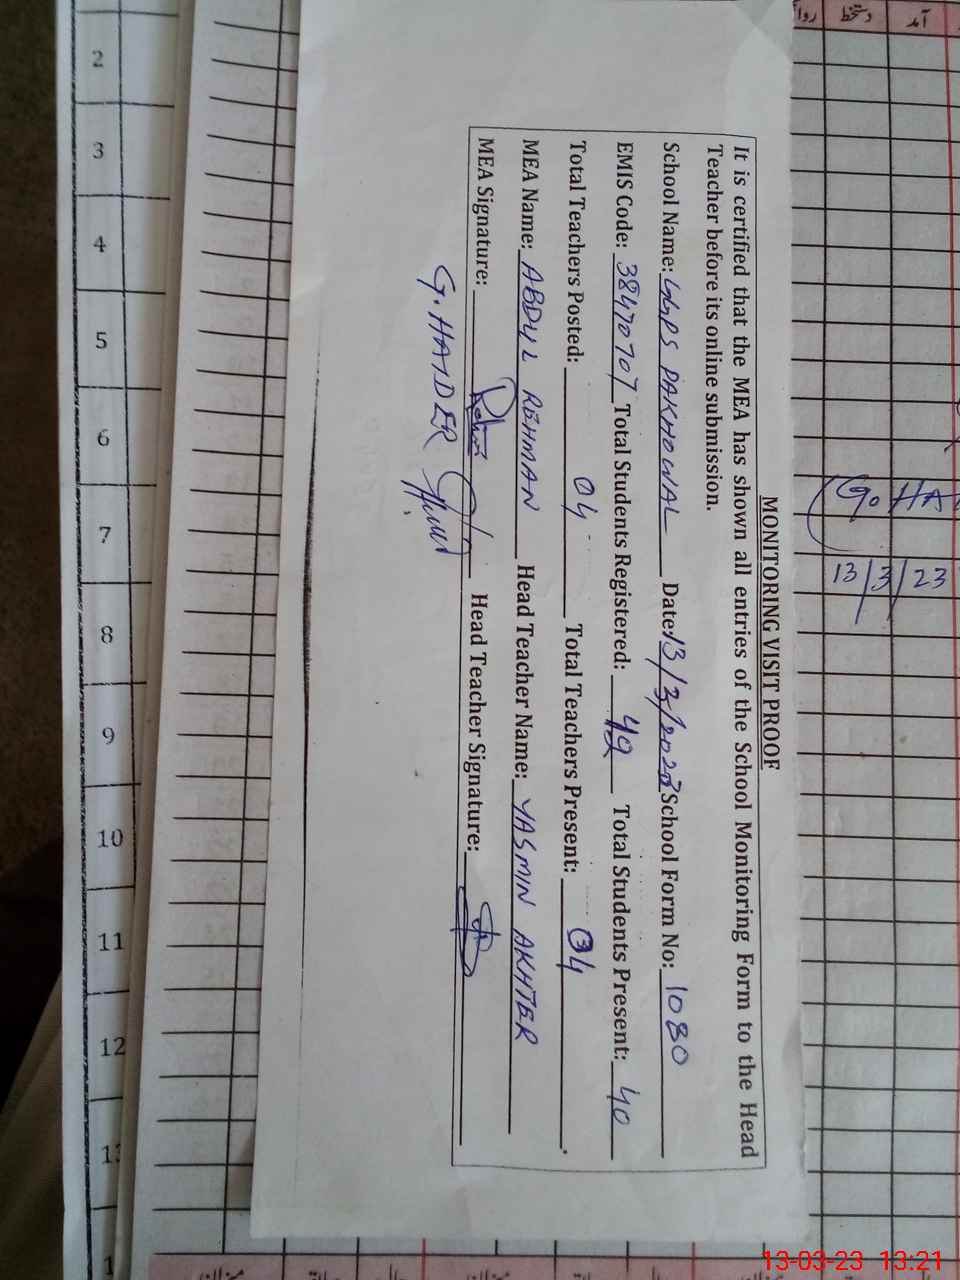 MONITORING VISIT PROOF
It is certified that the MEA has shown all entries of the School Monitoring Form to the Head
Teacher before its online submission.
School Name: GGPS PAKHOWAL Date: 13/3/2023 School Form No: 1080
EMIS Code: 38470707 Total Students Registered: 49 Total Students Present: 40
Total Teachers Posted: 04 Total Teachers Present: 04.
MEA Name: ABDUL REHMAN Head Teacher Name: YASMIN AKHTER
MEA Signature: Head Teacher Signature:
G. HAIDER
آمد دستخط روا
G. HA
13/3/23
2
3
4
5
6
7
8
9
10
11
12
13-03-23 13:21